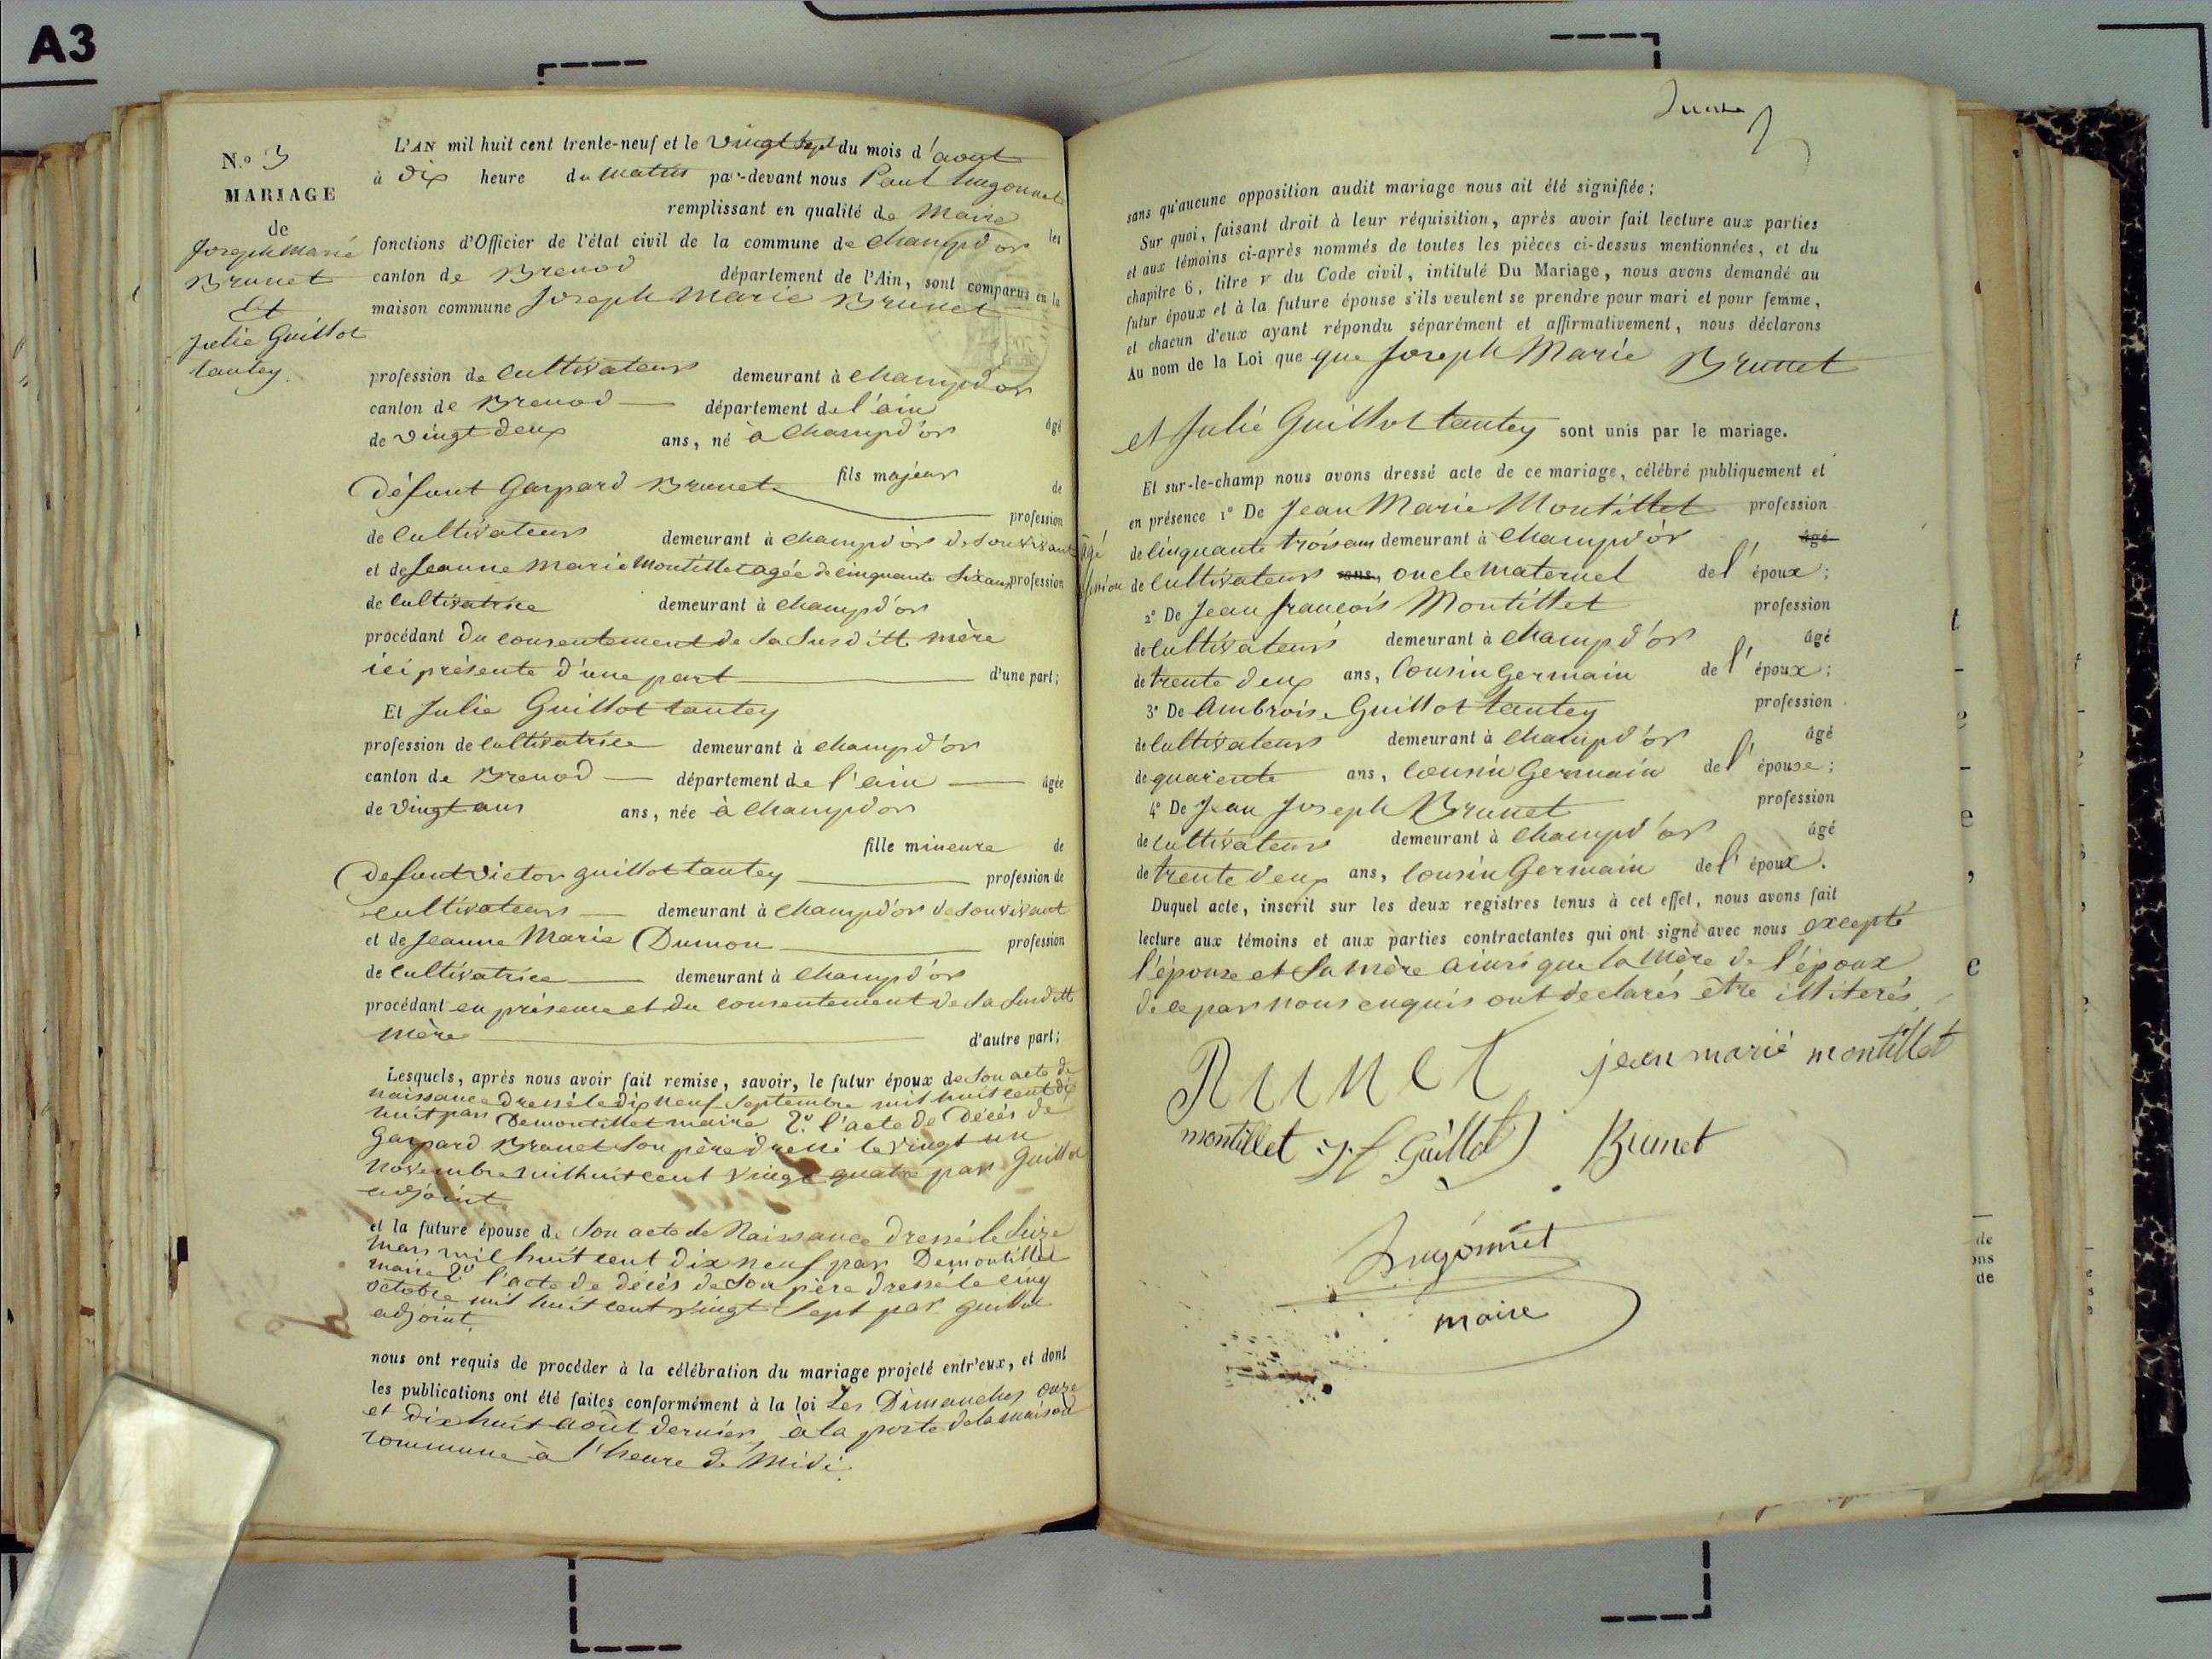 A3
N.º 3
MARIAGE
de
Joseph Marie
Brunet
Et
Julie Guillot
tantey.
L'AN mil huit cent trente-neuf et le vingt sept du mois d'aout
à dix heure du matin par-devant nous Paul hugonnet
remplissant en qualité de Maire les
fonctions d'Officier de l'état civil de la commune de champd'or
canton de Brenod département de l'Ain, sont comparus en la
maison commune Joseph Marie Brunet
profession de cultivateur demeurant à champd'or
canton de Brenod département de l'ain
de vingt deux ans, né à Champd'or âgé
fils majeur de
défunt Gaspard Brunet profession
de cultivateur demeurant à champd'or de son vivant
et de Jeanne Marie Montillet agée de cinquante six ans profession
de cultivatrice demeurant à champd'or
procédant du consentement de sa susditte mère
ici présente d'une part d'une part;
Et Julie Guillot tantey
profession de cultivatrice demeurant à champd'or
canton de Brenod département de l'ain âgée
de vingt ans ans, née à Champd'or
fille mineure de
defunt victor guillot tantey profession de
cultivateur demeurant à champd'or de son vivant
et de Jeanne Marie Dumon profession
de cultivatrice demeurant à champd'or
procédant en présence et du consentement de sa susditt
mère d'autre part;
Lesquels, après nous avoir fait remise, savoir, le futur époux de son acte de
naissance dressé le dix neuf septembre mil huit cent dix
huit par Demontillet maire 2.º l'acte de décès de
Gaspard Brunet son père dressé le vingt un
novembre mil huit cent vingt quatre par Guillot
adjoint.
et la future épouse de son acte de Naissance dressé le seize
mars mil huit cent dix neuf par Demontillet
maire 2.º l'acte de décès de son père dressé le cinq
octobre mil huit cent vingt sept par guillot
adjoint.
nous ont requis de procéder à la célébration du mariage projeté entr'eux, et dont
les publications ont été faites conformément à la loi Les Dimanches onze
et dix huit août dernier, à la porte de la maison
commune à l'heure de Midi.
sans qu'aucune opposition audit mariage nous ait été signifiée;
Sur quoi, faisant droit à leur réquisition, après avoir fait lecture aux parties
et aux témoins ci-après nommés de toutes les pièces ci-dessus mentionnées, et du
chapitre 6, titre v du Code civil, intitulé Du Mariage, nous avons demandé au
futur époux et à la future épouse s'ils veulent se prendre pour mari et pour femme,
et chacun d'eux ayant répondu séparément et affirmativement, nous déclarons
Au nom de la Loi que que Joseph Marie Brunet
et Julie Guillot tantey sont unis par le mariage.
Et sur-le-champ nous avons dressé acte de ce mariage, célébré publiquement et
en présence 1º De Jean Marie Montillet profession
âgé de cinquante trois ans demeurant à Champd'or âgé
de cultivateur ans, oncle maternel de l'époux;
2º De Jean françois Montillet profession
de cultivateur demeurant à champd'or âgé
de trente deux ans, Cousin Germain de l'époux;
3º De Ambroise Guillot tantey profession
de cultivateur demeurant à Champd'or âgé
de quarente ans, cousin Germain de l'épouse;
4º De Jean Joseph Brunet profession
de cultivateur demeurant à champd'or âgé
de trente deux ans, cousin Germain de l'époux.
Duquel acte, inscrit sur les deux registres tenus à cet effet, nous avons fait
lecture aux témoins et aux parties contractantes qui ont signé avec nous excepté
l'épouse et sa mère ainsi que la mère de l'époux
de ce par nous enquis ont declarés être illiterés
jean marie montillet
montillet j f Guillot Brunet
hugonnet
maire